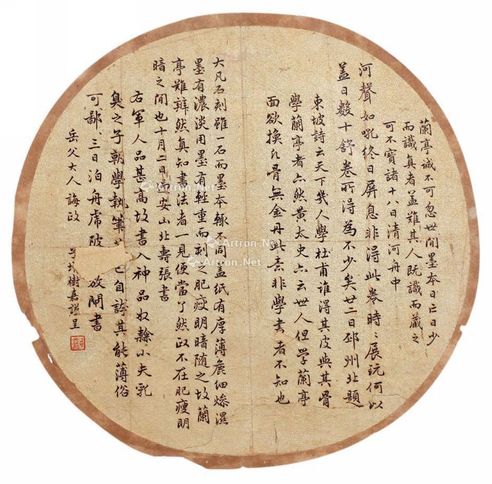 蘭亭誠不可忽世間墨本日亡日少
而識真者蓋難其人既識而藏之
可不寶諸十八日清河舟中
河聲如吼終日屏息非得此卷時展玩何以
盖日數十舒卷所得為不少矣廿二日邳州北題
東坡詩云天下幾人學杜甫誰得其皮與其骨
學蘭亭者亦然黃太史亦云世人但學蘭亭
面欲換凡骨無金丹此意非學書者不知也
大凡石刻雖一石而墨本輙不同盖紙有厚薄麤細燥濕
墨有濃淡用墨有輕重而刻之肥瘦明暗隨之故蘭
亭難辨然真知書法者一見便當了然正不在肥瘦明
暗之間也十月二日過安山北壽張書
右軍人品甚高故書入神品奴隸小夫乳
臭之子朝學執筆已自誇其能薄俗
可鄙三日泊舟虎陂放閘書
岳父大人誨政
樹嘉謹呈
Artron.Net
Artron.Net